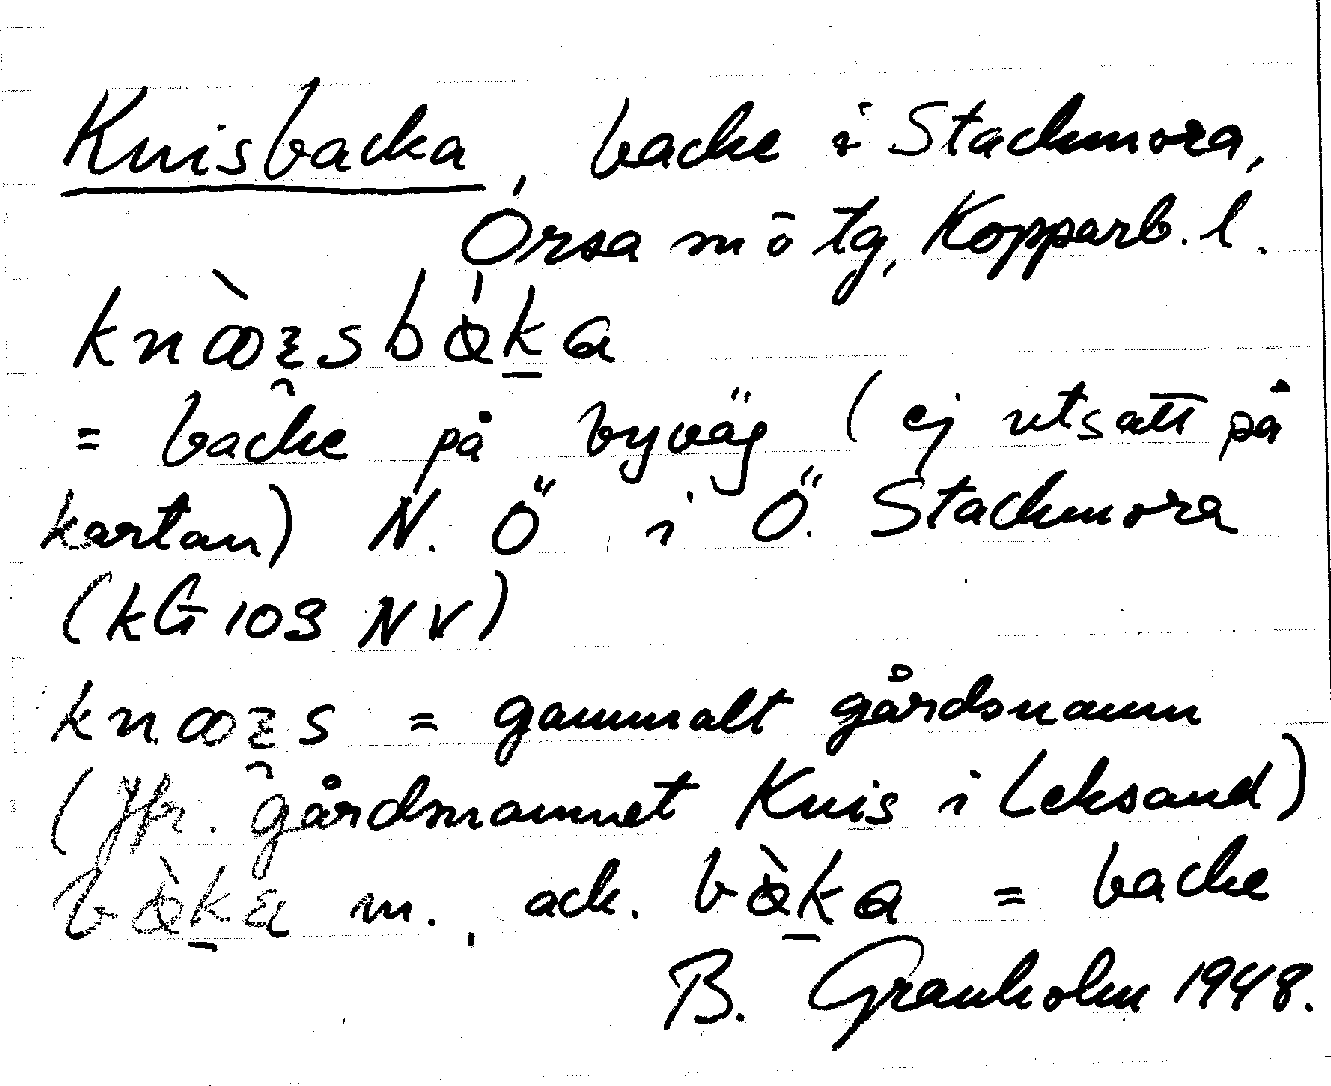 Knisbacka, backe i Stackmora,
Orsa m ō tg, Kopparb. l.
knòızsbàka
= backe på byväg (ej utsatt på
kartan) N. Ö i Ö. Stackmora
(kG 103 NV)
= gammalt gårdsnamn
(Jfr. gårdsnamnet Knis i Leksand)
bàka m., ack. bàka = backe
B. Granholm 1948.